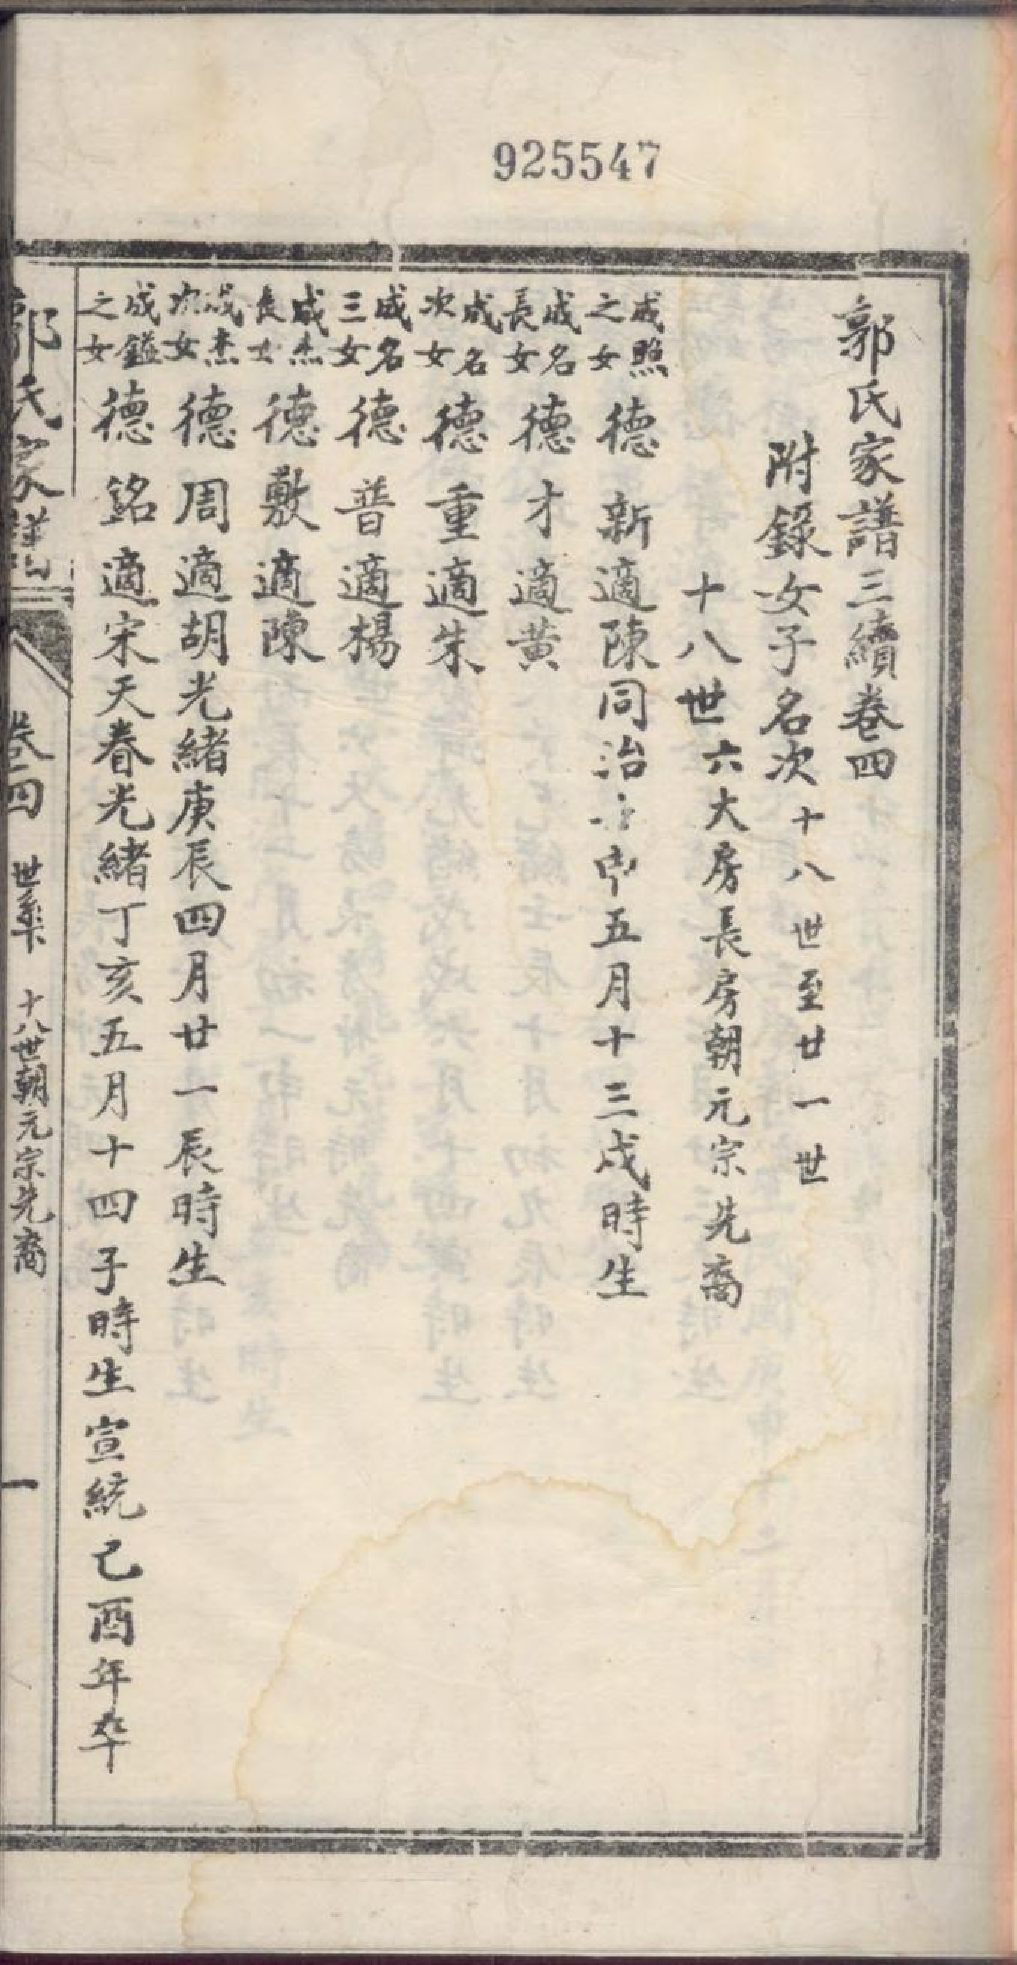 925547
郭氏家譜三續卷四
附錄女子名次十八世至廿一世
十八世六大房長房朝元宗先裔
成照之女德新適陳同治申五月十三戌時生
成名長女德才適黃
成名次女德重適朱
成名三女德普適楊
成杰長女德敷適陳
成杰次女德周適胡光緒庚辰四月廿一辰時生
成鎰之女德銘適宋天眷光緒丁亥五月十四子時生宣統己酉年卒
郭氏家譜 卷四 世系卞 十八世朝元宗先裔 一